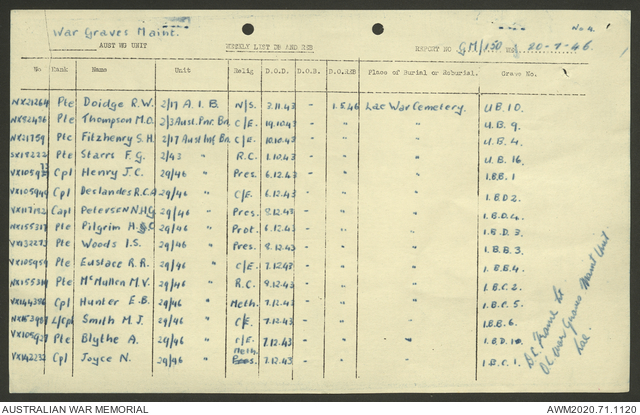 No 4.
War Graves Maint.
AUST WG UNIT WEEKLY LIST DB AND RES REPORT NO GM/150 20-7-46.
No Rank Name Unit Relig D.O.D. D.O.B. D.O.REB Place of Burial or Reburial. Grave No.
NX21264 Pte Doidge R.W. 2/17 A.I.B. N/S. 3.11.43 - 1.5.46 Lae War Cemetery. U.B.10.
NX52436 Pte Thompson M.D. 2/3 Aust. Pnr. Bn. C/E. 19.10.43 - " " U.B. 9.
NX21759 Pte Fitzhenry S.H. 2/17 Aust Inf. Bn. C/E. 10.10.43 - " " U.B. 4.
SX19222 Pte Starrs F.G. 2/43 " R.C. 1.10.43 - " " U.B. 16.
Cpl Henry J.C. 29/46 " Pres. 6.12.43 - " " 1.B.B.1
VX105949 Cpl Deslandes R.C.A 29/46 " C/E. 6.12.43 - " " 1.B.D2.
Capl Petersen N.H.G. 29/46 " Pres. 8.12.43 - " " 1.B.D.4.
VX155317 Pte Pilgrim 29/46 " Prot. 6.12.43 - " " 1.B.D.3.
VX132273 Pte Woods I.S. 29/46 " Pres. 9.12.43 - " " 1.B.B.3.
VX105959 Pte Eustace R.R. 29/46 " C/E. 7.12.43 - " " 1.B.B.4.
VX155314 Pte McMullen M.V. 29/46 " R.C. 9.12.43 - " " 1.B.C.2.
VX144386 Cpl Hunter E.B. 29/46 " Meth. 7.12.43 - " " 1.B.C.5.
L/Cpl Smith M.J. 29/46 " C/E. 7.12.43 - " " 1.B.B.6.
VX105927 Pte Blythe A. 29/46 " C/E. 7.12.43 - " " 1.B.D.10.
VX142232 Cpl Joyce N. 29/46 " Meth. 7.12.43 - " " 1.B.C.1.
OC War Graves Maint Unit
Lae.
AUSTRALIAN WAR MEMORIAL AWM2020.71.1120